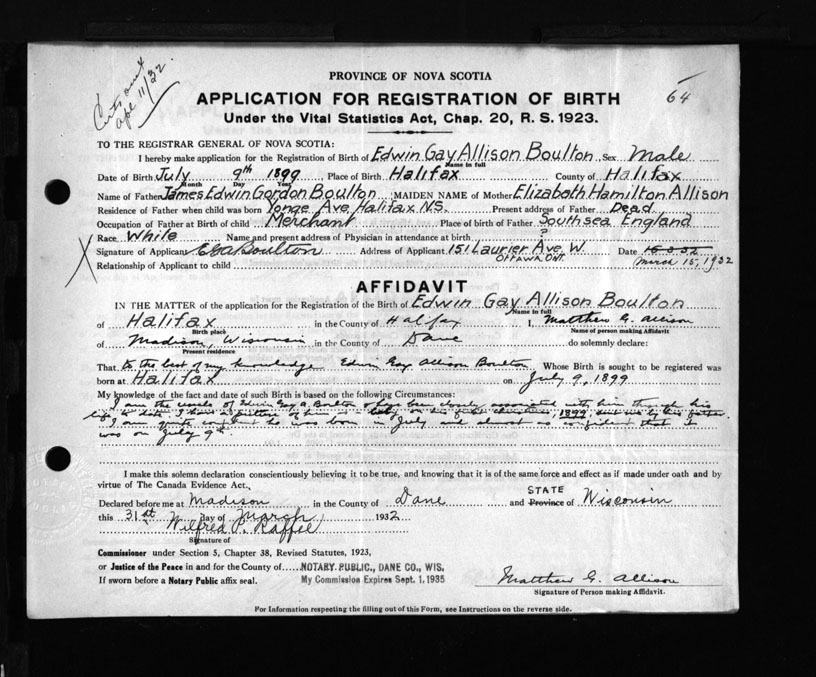 Certs sent
Apl 11/32.
64
PROVINCE OF NOVA SCOTIA
APPLICATION FOR REGISTRATION OF BIRTH
Under the Vital Statistics Act, Chap. 20, R. S. 1923.
TO THE REGISTRAR GENERAL OF NOVA SCOTIA:
I hereby make application for the Registration of Birth of Edwin Gay Allison Boulton Sex Male
Name in full
Date of Birth July 9th 1899 Place of Birth Halifax County of Halifax
Month Day Year
Name of Father James Edwin Gordon Boulton MAIDEN NAME of Mother Elizabeth Hamilton Allison
Residence of Father when child was born Yonge Ave Halifax N.S. Present address of Father Dead
Occupation of Father at Birth of child Merchant Place of birth of Father Southsea England
Race White Name and present address of Physician in attendance at birth ?
Signature of Applicant EGABoulton Address of Applicant 151 Laurier Ave. W. Date 16-3-32
OTTAWA ONT. March 15, 1932
Relationship of Applicant to child
AFFIDAVIT
IN THE MATTER of the application for the Registration of the Birth of Edwin Gay Allison Boulton
Name in full
of Halifax in the County of Halifax I, Matthew G. Allison
Birth place Name of person making Affidavit
of Madison, Wisconsin in the County of Dane do solemnly declare:
Present residence
That to the best of my knowledge Edwin Gay Allison Boulton Whose Birth is sought to be registered was
born at Halifax on July 9, 1899
My knowledge of the fact and date of such Birth is based on the following Circumstances:
I am the uncle of Edwin Gay A. Boulton & have been closely associated with him through his
life to date. I have a picture of him as a baby on his first christmas, 1899 sent me by his father.
I am quite confident he was born in July and almost as confident that it
was on July 9th
I make this solemn declaration conscientiously believing it to be true, and knowing that it is of the same force and effect as if made under oath and by
virtue of The Canada Evidence Act.
Declared before me at Madison in the County of Dane and Province of STATE Wisconsin
this 31st day of March 1932
Wilfred P. Raffel
Signature of
Commissioner under Section 5, Chapter 38, Revised Statutes, 1923,
or Justice of the Peace in and for the County of NOTARY PUBLIC, DANE CO., WIS.
If sworn before a Notary Public affix seal. My Commission Expires Sept. 1, 1935
Matthew G. Allison
Signature of Person making Affidavit.
For Information respecting the filling out of this Form, see Instructions on the reverse side.